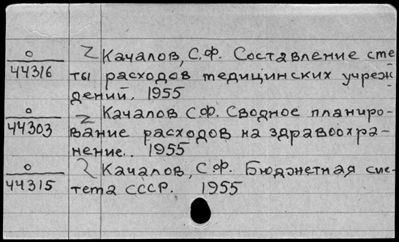 о
44316
2 Качалов, С.Ф. Составление сме
ты расходов медицинских учреж
дений. 1955
о
44303
2 Качалов С.Ф. Сводное планиро-
вание расходов на здравоохра-
нение. 1955
о
44315
2 Качалов, С.Ф. Бюджетная сис-
тема СССР. 1955